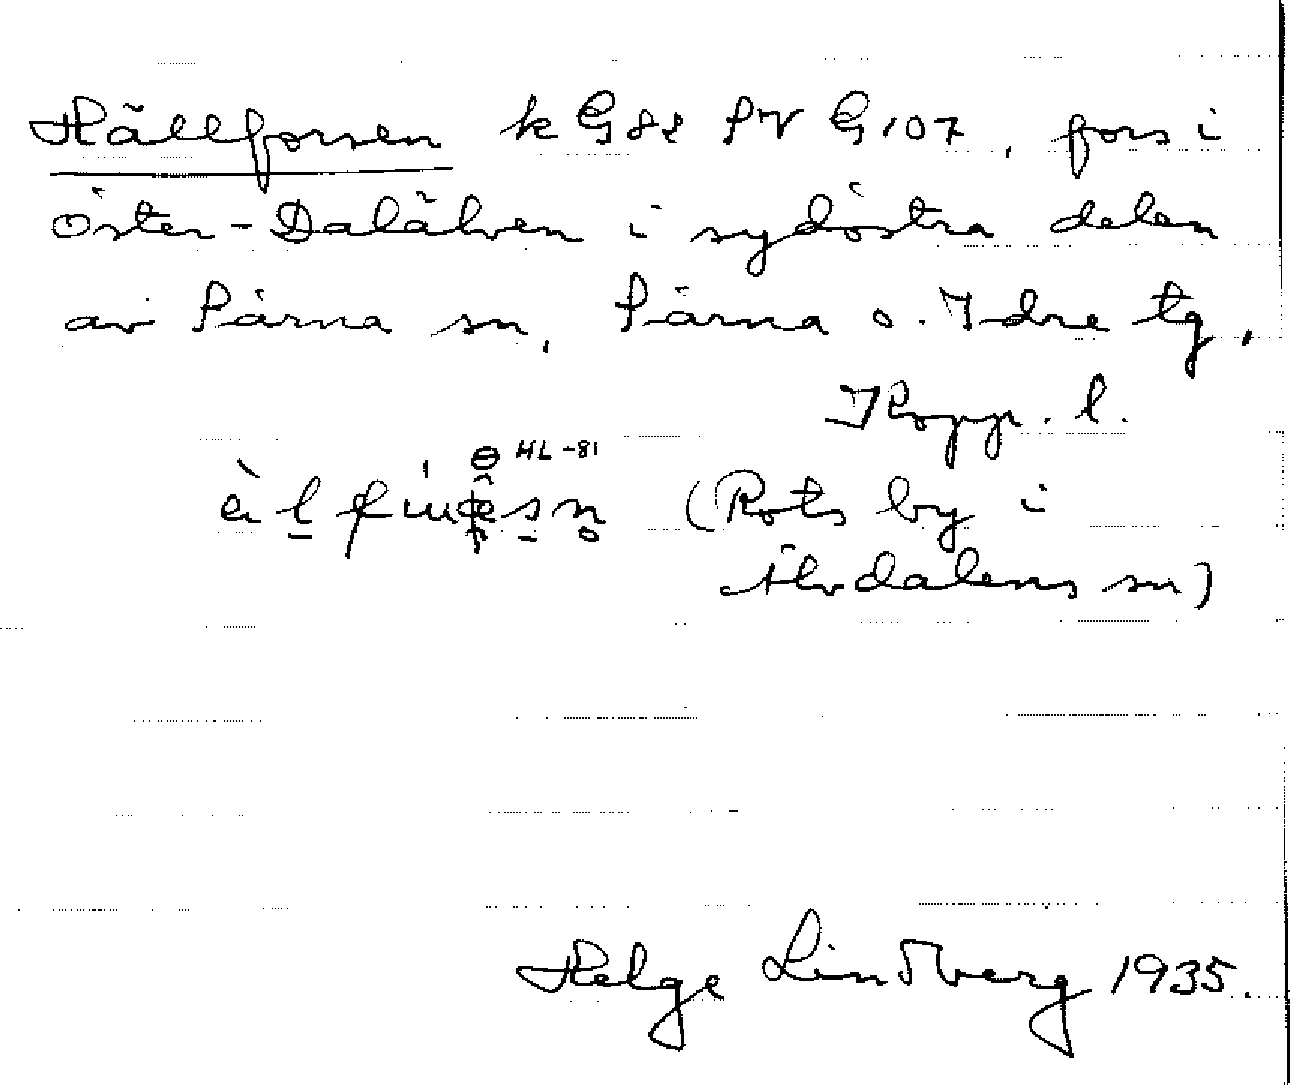 Hällforsen k G82 SV G107, fors i
Öster-Dalälven i sydöstra delen
av Särna sn, Särna o. Idre tg,
Kopp. l.
HL -81
(Rots by i
Älvdalens sn)
Helge Lindberg 1935.